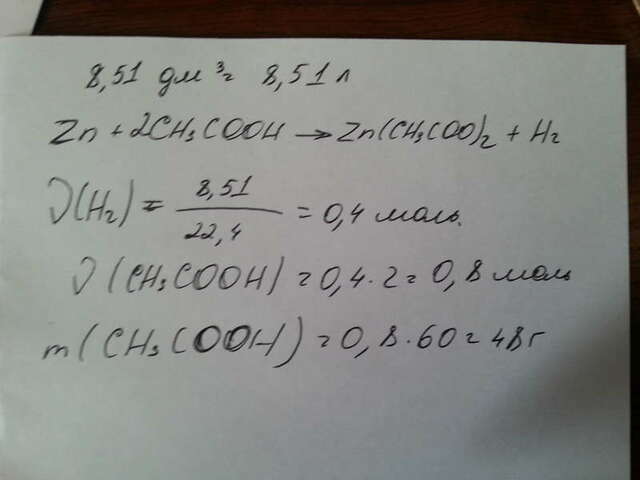 8,51 дм³ = 8,51 л
Zn + 2CH₃COOH → Zn(CH₃COO)₂ + H₂
ν(H₂) = 8,51 / 22,4 = 0,4 моль.
ν(CH₃COOH) = 0,4 · 2 = 0,8 моль
m(CH₃COOH) = 0,8 · 60 = 48 г